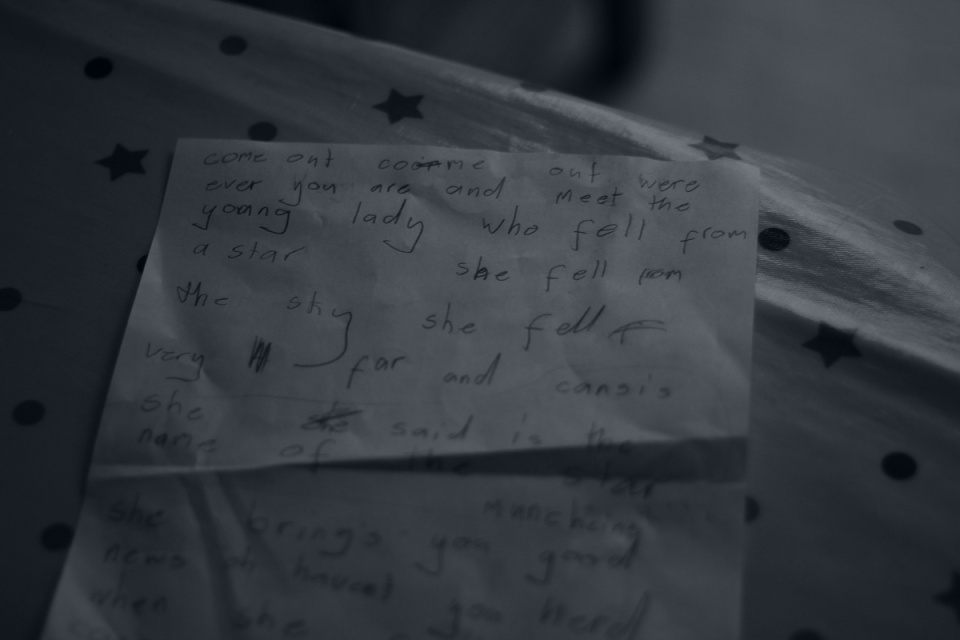 come out come out were
ever you are and meet the
young lady who fell from
a star she fell from
the sky she fell
very far and cansis
she said is the
name of the star
she bring's you good munchcing
news oh havent
when she you herd